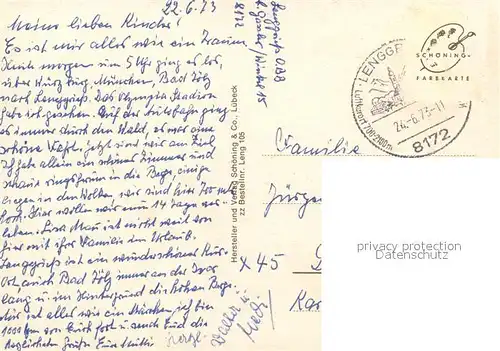 22.6.73
Meine lieben Kinder!
Es ist mir alles wie ein Traum
Heute morgen um 5 Uhr ging es los,
über Würzburg, München, Bad Tölz
nach Lenggries. Das Olympia Stadion
habe ich gesehen. Auf der Autobahn ging
es immer durch den Wald, es war eine
schöne Fahrt. Jetzt sind wir am Ziel
Ich habe allein ein schönes Zimmer und
schaue ringsherum in die Berge einige
liegen in den Wolken wir sind hier 700 m
hoch. Hier wollen wir nun 14 Tage ver-
leben. Lisa Marie ist nicht weit von
hier mit ihrer Familie im Urlaub.
Lenggries ist ein wunderschöner Kur-
Ort, auch Bad Tölz immer an der Isar
lang u. im Hintergrund die hohen Berge.
Mir ist alles wie ein Märchen, ich bin
1000 km von Euch fort u. sende Euch die
herzlichsten Grüße Eure Mutti
Herzl.
Walter u.
Hedi
Lenggries OBB
8172
Hersteller und Verlag Schöning & Co., Lübeck
zz Bestellnr. Leng 105
SCHÖNING-
FARBKARTE
LENGGR
Luftkurort
24.-6.73-11
8172
Familie
Jürge
x45
privacy protection
Datenschutz